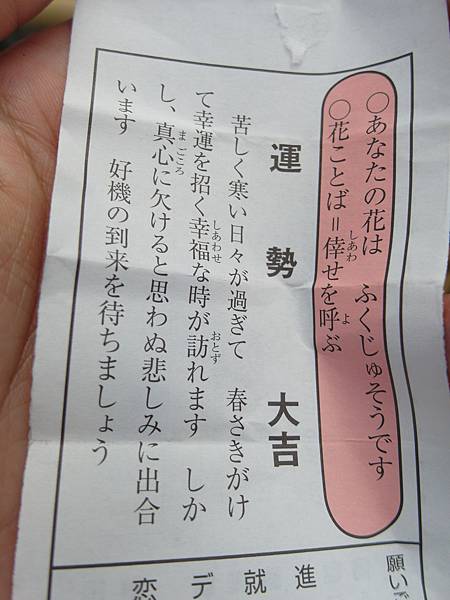 ○あなたの花は　ふくじゅそうです
○花ことば＝倖せを呼ぶ
運勢　大吉
苦しく寒い日々が過ぎて　春さきがけ
て幸運を招く幸福な時が訪れます　しか
し、真心に欠けると思わぬ悲しみに出合
います　好機の到来を待ちましょう
願い
進
就
デ
恋